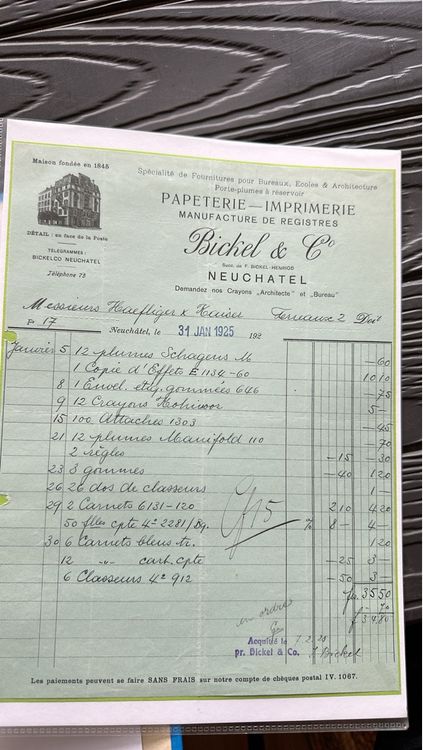 Maison fondée en 1848
Spécialité de Fournitures pour Bureaux, Ecoles & Architecture
Porte-plumes à réservoir
PAPETERIE — IMPRIMERIE
MANUFACTURE DE REGISTRES
DÉTAIL: en face de la Poste
TÉLÉGRAMMES:
BICKELCO NEUCHATEL
Téléphone 73
Bickel & Co
Succ. de F. BICKEL-HENRIOD
NEUCHATEL
Demandez nos Crayons „Architecte" et „Bureau"
Messieurs Haefliger & Kaiser Terreaux 2 Doit
F. 17
Neuchâtel, le 31 JAN 1925 192
Janvier 5 12 plumes Schragens M — 60
1 Copie d'Effets E 1134-60 10 10
8 1 Envel. etiq. gommées 646 — 75
9 12 Crayons Kohinoor 5 —
15 100 Attaches 1303 — 45
21 12 plumes Manifold 110 — 70
2 règles — 15 — 30
23 3 gommes — 40 1 20
26 26 dos de classeurs 1 —
29 2 Carnets 6131-120 2 10 4 20
50 flles cpte 4° 2281/ % 8 — 4 —
30 6 Carnets bleus tr. 1 20
12 -"- cart. cpte — 25 3 —
6 Classeurs 4° 912 — 50 3 —
35 50
— 70
34 80
en ordre
Acquitté le 7.2.25
pr. Bickel & Co. J. Bickel
Les paiements peuvent se faire SANS FRAIS sur notre compte de chèques postal IV. 1067.